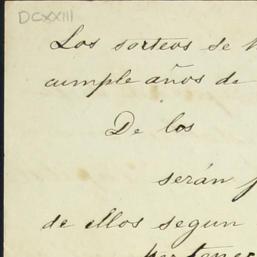 DCXXIII
Los sorteos se
cumple años de
De los
serán
de ellos segun